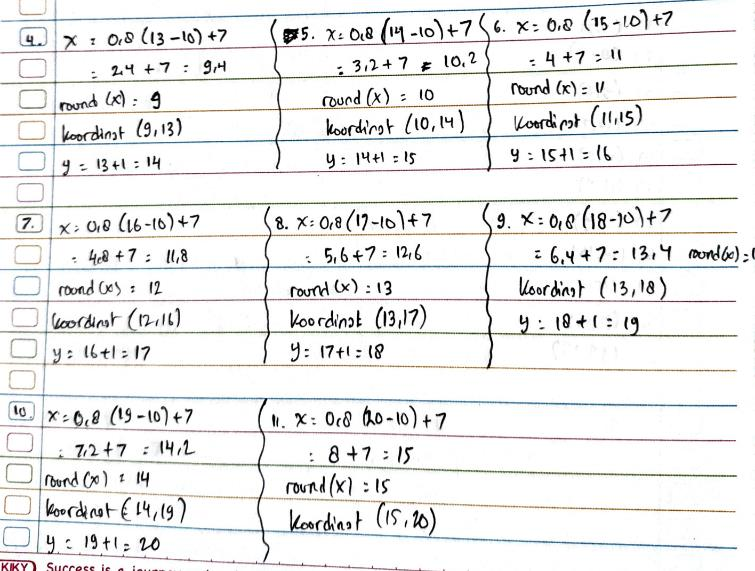 4. x = 0,8 (13-10)+7
= 2,4 + 7 = 9,4
round (x) = 9
koordinat (9,13)
y = 13+1 = 14
5. x = 0,8 (14-10)+7
= 3,2+7 = 10,2
round (x) = 10
koordinat (10,14)
y = 14+1 = 15
6. x = 0,8 (15-10)+7
= 4+7 = 11
round (x) = 11
koordinat (11,15)
y = 15+1 = 16
7. x = 0,8 (16-10)+7
= 4,8 + 7 = 11,8
round (x) = 12
koordinat (12,16)
y = 16+1 = 17
8. x = 0,8 (17-10)+7
= 5,6+7 = 12,6
round (x) = 13
koordinat (13,17)
y = 17+1 = 18
9. x = 0,8 (18-10)+7
= 6,4+7 = 13,4 round(x) =
koordinat (13,18)
y = 18+1 = 19
10. x = 0,8 (19-10)+7
= 7,2+7 = 14,2
round (x) = 14
koordinat (14,19)
y = 19+1 = 20
11. x = 0,8 (20-10)+7
= 8+7 = 15
round (x) = 15
koordinat (15,20)
KIKY Success is a